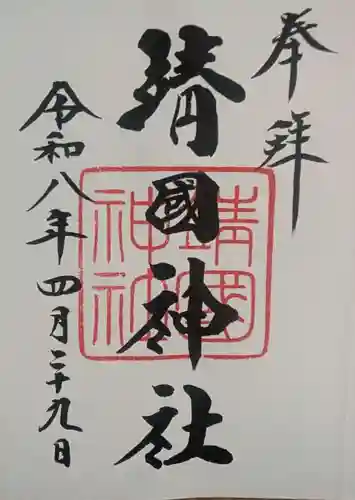 奉拝
靖國神社
靖國神社
令和八年四月二十九日